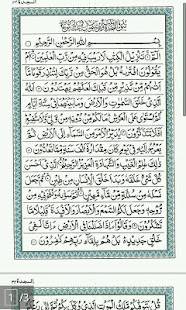 السجدة ٣٢
بِسْمِ اللهِ الرَّحْمٰنِ الرَّحِيْمِ
الٓمّٓ تَنْزِيْلُ الْكِتٰبِ لَا رَيْبَ فِيْهِ مِنْ رَّبِّ الْعٰلَمِيْنَ اَمْ
يَقُوْلُوْنَ افْتَرٰىهُ بَلْ هُوَ الْحَقُّ مِنْ رَّبِّكَ لِتُنْذِرَ قَوْمًا مَّآ
اَتٰىهُمْ مِّنْ نَّذِيْرٍ مِّنْ قَبْلِكَ لَعَلَّهُمْ يَهْتَدُوْنَ اَللهُ
الَّذِيْ خَلَقَ السَّمٰوٰتِ وَالْاَرْضَ وَمَا بَيْنَهُمَا فِيْ سِتَّةِ اَيَّامٍ ثُمَّ
اسْتَوٰى عَلَى الْعَرْشِ مَا لَكُمْ مِّنْ دُوْنِهٖ مِنْ وَّلِيٍّ وَّلَا شَفِيْعٍ
اَفَلَا تَتَذَكَّرُوْنَ يُدَبِّرُ الْاَمْرَ مِنَ السَّمَآءِ اِلَى الْاَرْضِ ثُمَّ
يَعْرُجُ اِلَيْهِ فِيْ يَوْمٍ كَانَ مِقْدَارُهٗٓ اَلْفَ سَنَةٍ مِّمَّا تَعُدُّوْنَ
ذٰلِكَ عٰلِمُ الْغَيْبِ وَالشَّهَادَةِ الْعَزِيْزُ الرَّحِيْمُ الَّذِيْٓ اَحْسَنَ
كُلَّ شَيْءٍ خَلَقَهٗ وَبَدَاَ خَلْقَ الْاِنْسَانِ مِنْ طِيْنٍ ثُمَّ جَعَلَ
نَسْلَهٗ مِنْ سُلٰلَةٍ مِّنْ مَّآءٍ مَّهِيْنٍ ثُمَّ سَوّٰىهُ وَنَفَخَ فِيْهِ مِنْ
رُّوْحِهٖ وَجَعَلَ لَكُمُ السَّمْعَ وَالْاَبْصَارَ وَالْاَفْـِٕدَةَ قَلِيْلًا مَّا
تَشْكُرُوْنَ وَقَالُوْٓا ءَاِذَا ضَلَلْنَا فِي الْاَرْضِ ءَاِنَّا لَفِيْ
خَلْقٍ جَدِيْدٍ بَلْ هُمْ بِلِقَآءِ رَبِّهِمْ كٰفِرُوْنَ
1/3
السجدة ٣٢
قُلْ يَتَوَفّٰىكُمْ مَّلَكُ الْمَوْتِ الَّذِيْ وُكِّلَ بِكُمْ ثُمَّ اِلٰى رَبِّكُمْ